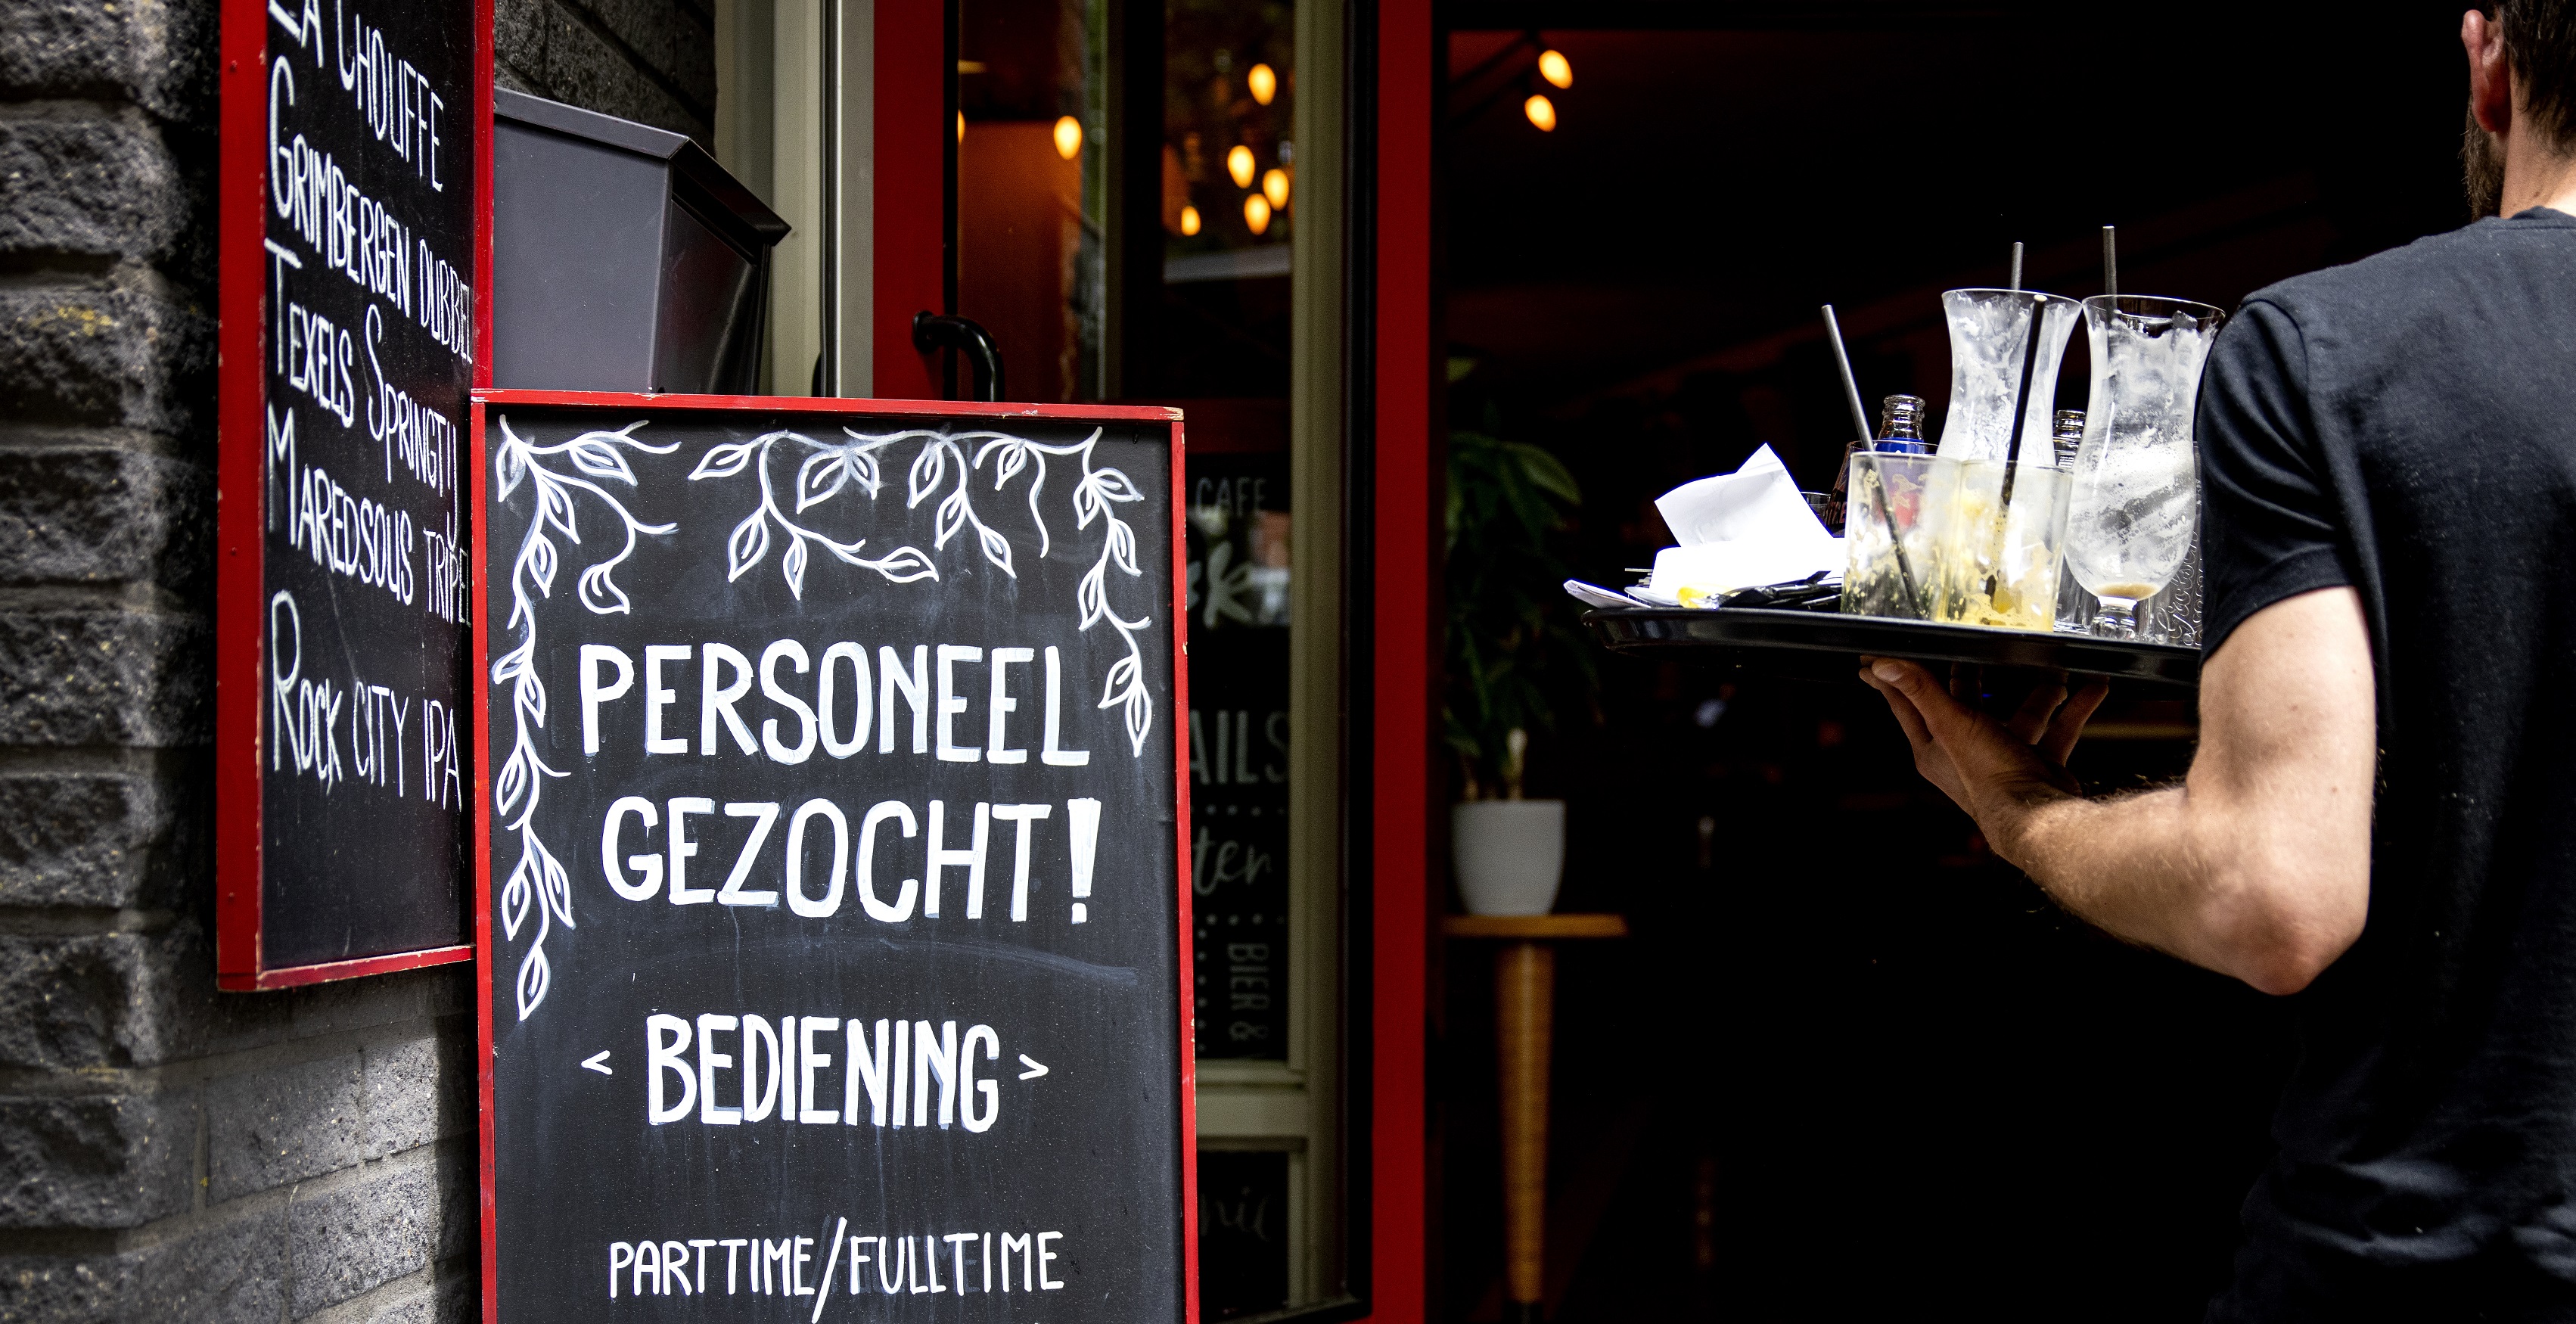 LA CHOUFFE
GRIMBERGEN DUBBEL
TEXELS SPRINGTIJ
MAREDSOUS TRIPEL
ROCK CITY IPA
PERSONEEL
GEZOCHT!
< BEDIENING >
PARTTIME/FULLTIME
CAFE
BIER &